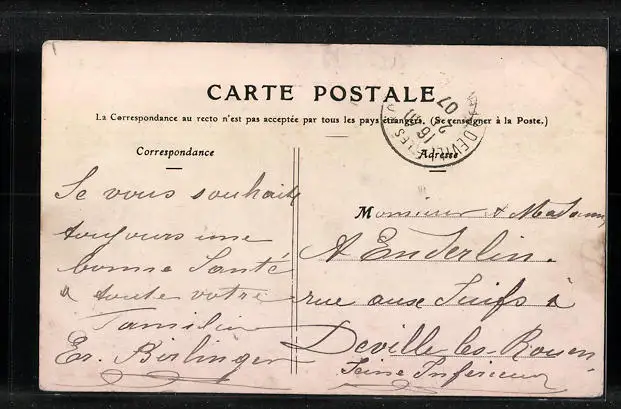 CARTE POSTALE
La Correspondance au recto n'est pas acceptée par tous les pays étrangers. (Se renseigner à la Poste.)
Correspondance
Je vous souhaite
toujours une
bonne Santé
a toute votre
Famille
Er. Birlinger
Adresse
DEVILLE LES
16
2
07
Monsieur & Madame
A Enderlin.
rue aux Juifs à
Deville les-Rouen
Seine Inférieur